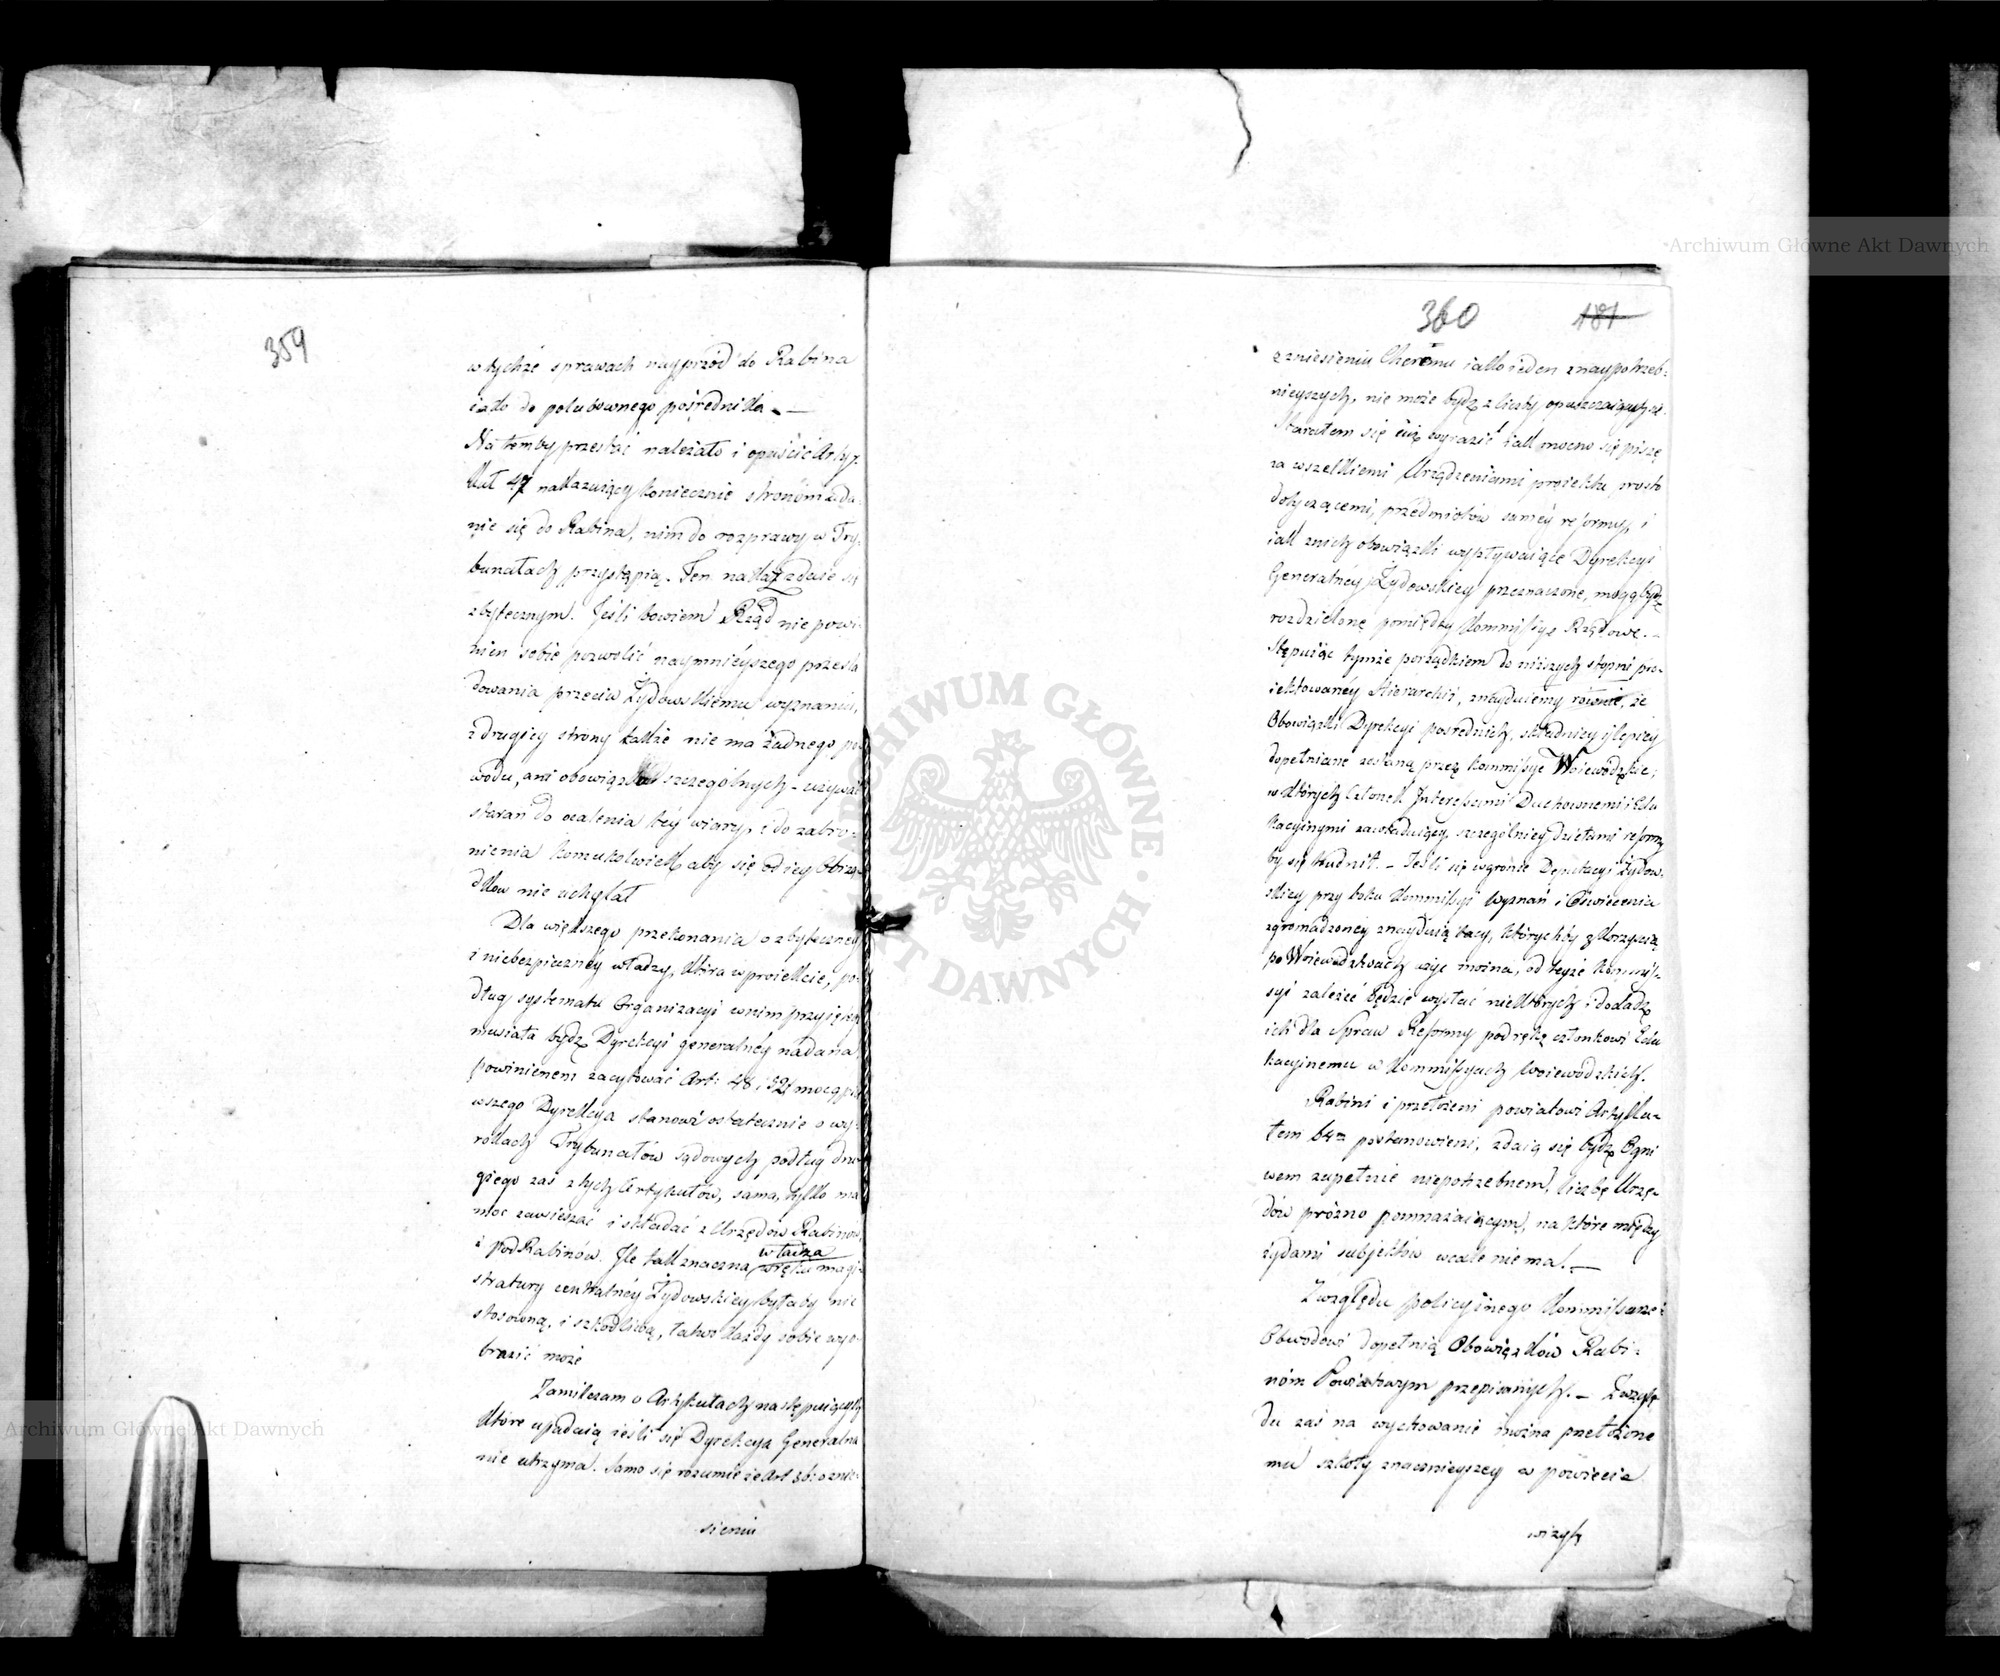 359
w tychże sprawach nayprzód do Rabina
iako do polubownego pośrednika. —
Na tem by przestać należało i opuścić Arty-
kuł 47 nakazuiący koniecznie stronóm uda-
nie się do Rabina, nim do rozprawy w Try-
bunałach przystąpią. Ten nakaz zdaie się
zbytecznym. Jeśli bowiem Rząd nie powi-
nien sobie pozwolić naymnieyszego prześla
dowania przeciw Żydowskiemu wyznaniu,
z drugiey strony także nie ma żadnego po-
wodu, ani obowiązku szczególnych używać
starań do ocalenia tey wiary, i do zabro-
nienia komukolwiek aby się od iey Obrzą-
dków nie uchylał
Dla większego przekonania o zbyteczney
i niebezpieczney władzy, która w proiekcie, po-
dług systematu Organizacyi w nim przyięte
musiała bydz Dyrekcyi generalney nadana,
powinienem zacytować Art: 48 i 52 mocą pier
wszego Dyrekcya stanowi ostatecznie o wy-
rokach Trybunałów sądowych podług dru-
giego zaś z tych Artykułów, sáma, tylko ma
moc zawieszać i składać z Urzędów Rabinów
i podRabinów. Ile tak znaczna władza w ręku magi-
stratury centralnéy Żydowskiey byłaby nie
stosowną, i szkodliwą, łatwo każdy sobie wyo-
brazić może
Zamilczam o Artykułach następuiących
które upadaią ieśli się Dyrekcya Generalna
nie utrzyma. Samo się rozumie że Art 56: o znie-
sieniu
360 181
z zniesieniu Cheremu iako ieden z naypotrzeb-
nieyszych, nie może bydz z liczby opuszczaiących się.
Starałem się iuż wyrazić iak mocno się piszę
za wszelkiemi Urządzeniami proiektu, prosto
dotyczącemi, przedmiotów saméy reformy, i
iak z nich obowiązki wypływaiące Dyrekcyi
Generalnéy Żydowskiey przeznaczone, mogą bydz
rozdzielone pomiędzy Kommissye Rządowe. —
Stępuiąc tymże porządkiem do niższych stopni pro-
iektowanéy Hierarchii, znayduiemy równie, że
Obowiązki Dyrekcyi pośrednich, składniey i lepiey
dopełniane zostaną przez Kommisye Woiewódzkie;
w których Członek Interessami Duchownemi i Edu
kacyinymi zawiaduiący, szczególniey dziełami reformy
by się trudnił. — Jeśli się w gronie Deputacyi Żydow-
skiey przy boku Kommissyi Wyznań i Oświecenia
zgromadzoney znayduią tacy, którychby z korzyścią
po Woiewództwach użyć można, od teyże Kommis-
syi zależeć będzie wysłać niektórych i dodadz
ich dla Spraw Reformy pod rękę członkowi Edu
kacyinemu w Kommissyach Woiewodzkich.
Rabini i przełożeni powiatowi Artyku-
łem 64m postanowieni, zdaią się bydz Ogni
wem zupełnie niepotrzebnem, liczbę Urzę-
dów próżno pomnażaiącym, na które między
żydami subjektów wcale nie ma. —
Z względu policyinego Kommissarze
Obwodowi dopełnią Obowiązków Rabi-
nóm Powiatowym przepisanych. — Z wzglę
du zaś na wychowanie można przełożone
mu szkoły znacznieyszey w powiecie
wizytę
Archiwum Główne Akt Dawnych
Archiwum Główne Akt Dawnych
ARCHIWUM GŁÓWNE AKT DAWNYCH